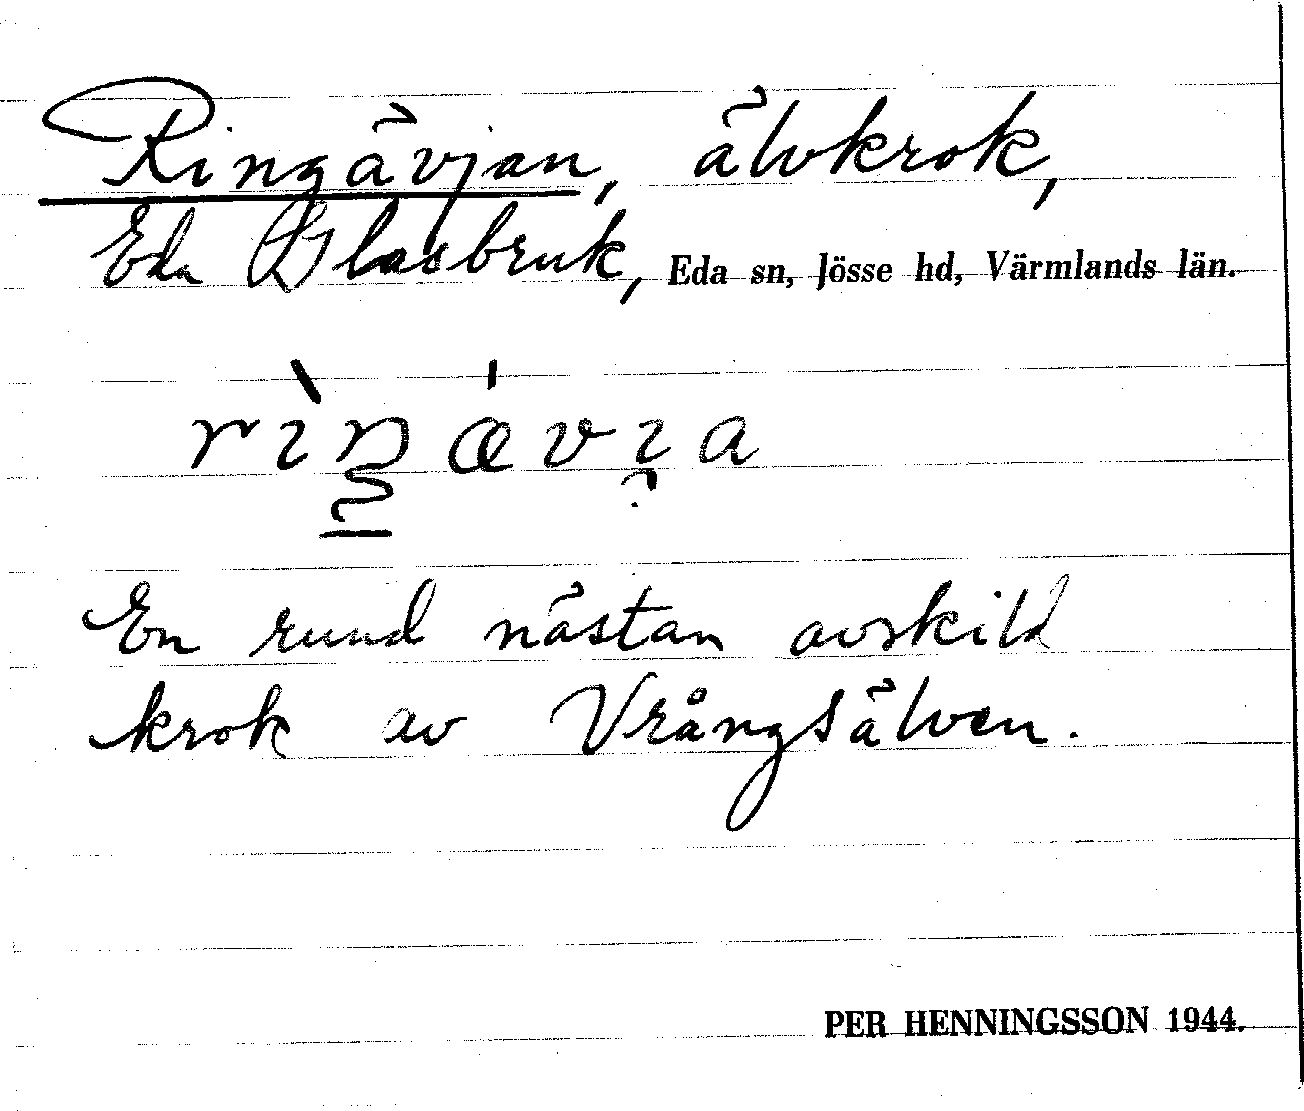 Ringävjan, älvkrok,
Eda Glasbruk, Eda sn, Jösse hd, Värmlands län.
rìŋǽvi̯a
En rund nästan avskild
krok av Vrångsälven.
PER HENNINGSSON 1944.